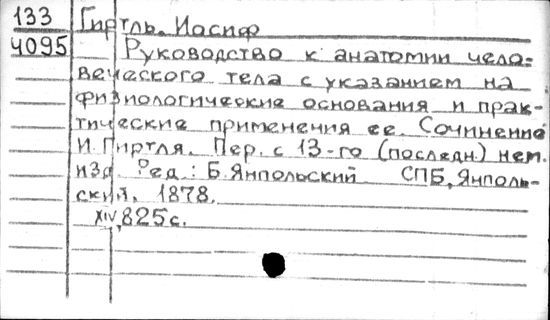 133
4095
Гиртль, Иосиф
Руководство к анатомии чело-
веческого тела с указанием на
физиологические основания и прак-
тические применения ее. Сочинение
И. Гиртля. Пер. с 13-го (последн.) нем.
изд. Ред.: Б. Янпольский СПБ, Янполь-
ский, 1878.
XIV, 825 с.